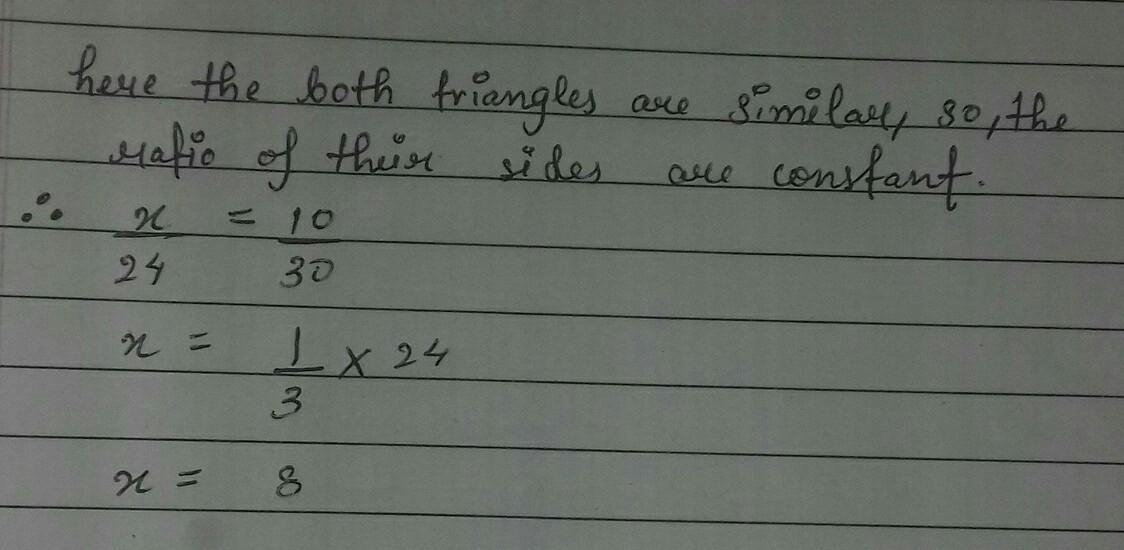 here the both triangles are similar, so, the
ratio of their sides are constant.
∴ x/24 = 10/30
x = 1/3 × 24
x = 8